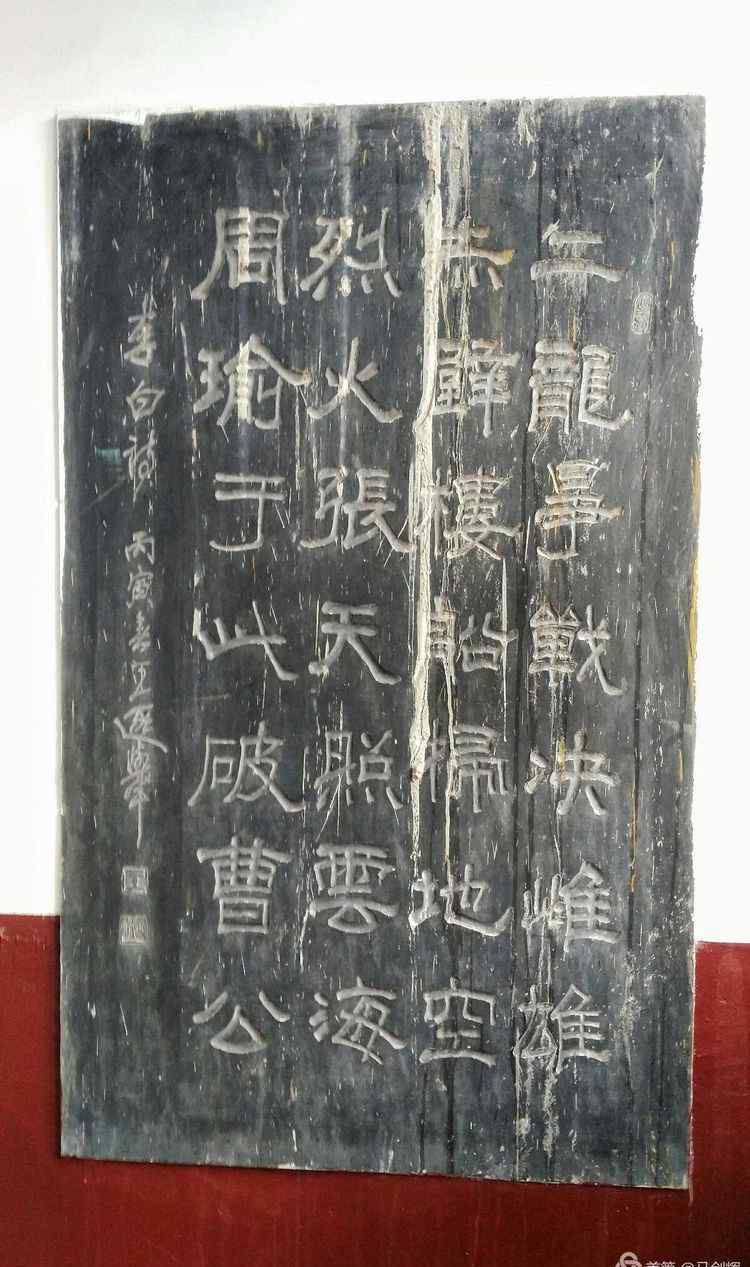 二龍爭戰决雌雄
赤壁樓船掃地空
烈火張天照雲海
周瑜于此破曹公
李白詩 丙寅春王遐舉